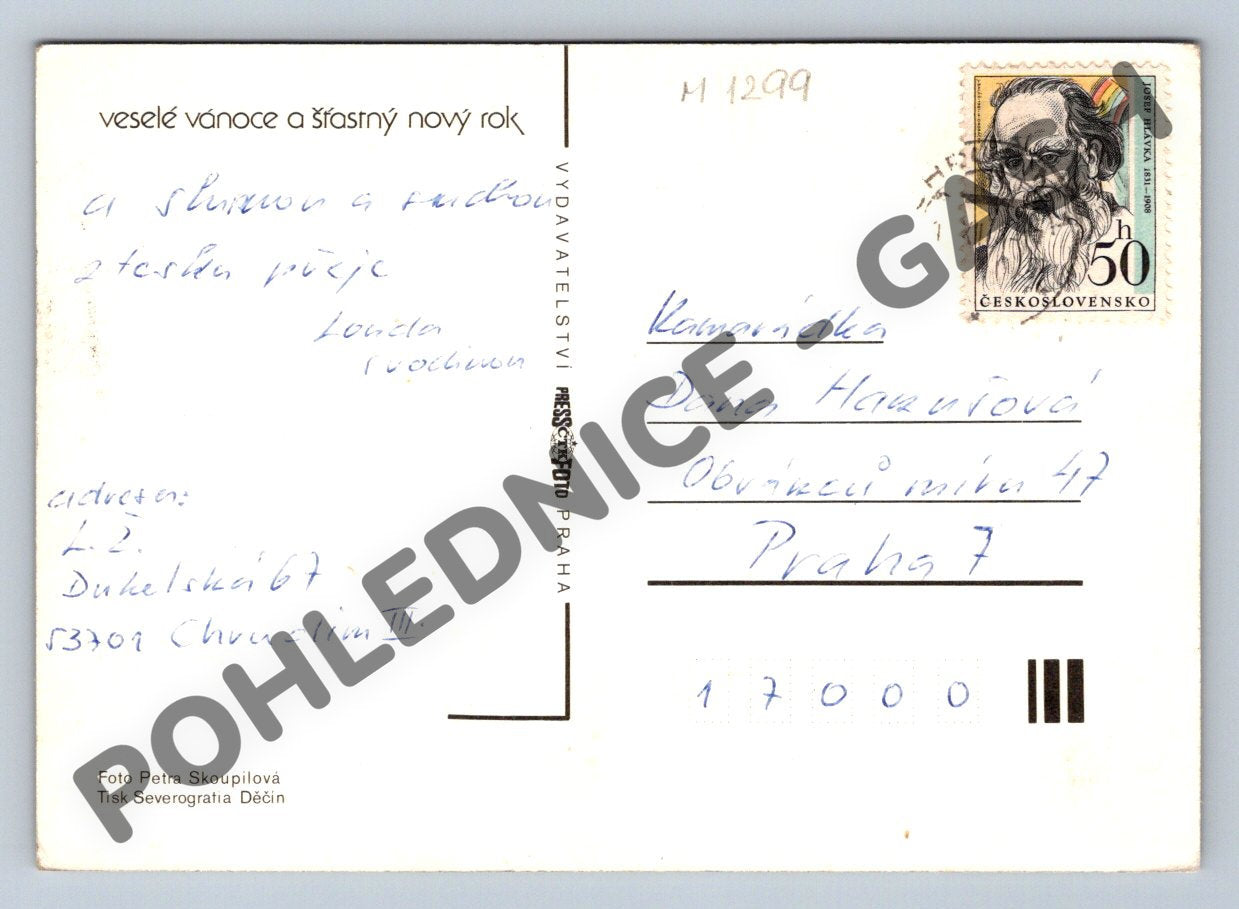 veselé vánoce a šťastný nový rok
a
přeje
Londa
s rodinou
adresa:
L. Ž.
Dukelská 67
53701 Chrudim III.
Foto Petra Skoupilová
Tisk Severografia Děčín
VYDAVATELSTVÍ PRESSFOTO PRAHA
ČTK
M 1299
JOSEF HLÁVKA 1831–1908
50 h
ČESKOSLOVENSKO
Kamarádka
Dana
Obránců míru 47
Praha 7
17000
POHLEDNICE - GALERA